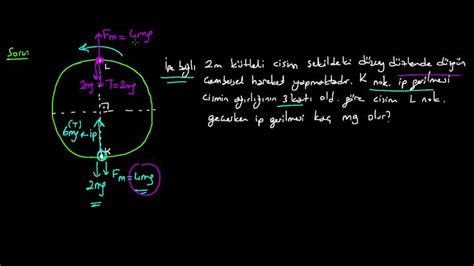 Soru:
Fm = 4mg
L
2mg T=2mg
(T)
6mg ip
K
2mg Fm = 4mg
İpe bağlı 2m kütleli cisim şekildeki düşey düzlemde düzgün
çembersel hareket yapmaktadır. K nok. ip gerilmesi
cismin ağırlığının 3 katı old. göre cisim L nok.
geçerken ip gerilmesi kaç mg olur?